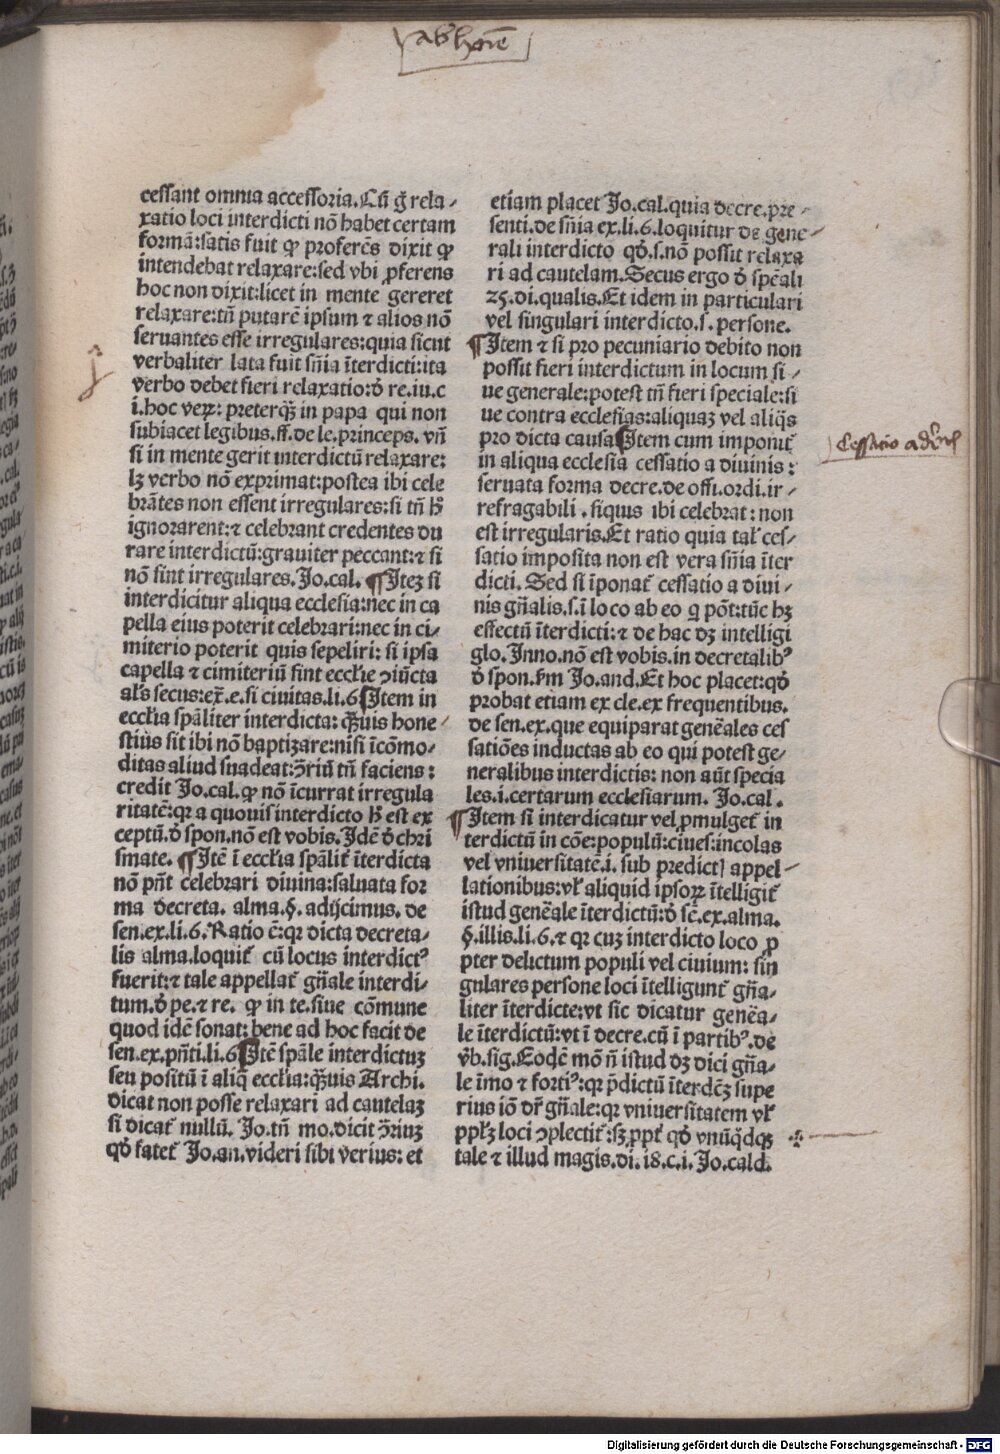 cessant omnia accessoria. Cũ g̃ rela⸗
xatio loci interdicti nõ habet certam
formã: satis fuit ꝙ proferẽs dixit ꝙ
intendebat relaxare: sed vbi ꝓferens
hoc non dixit: licet in mente gereret
relaxare: tñ putarẽ ipsum ⁊ alios nõ
seruantes esse irregulares: quia sicut
verbaliter lata fuit sñia ĩterdicti: ita
verbo debet fieri relaxatio: ð re. iu. c
i. hoc veꝝ: preterqƺ̃ in papa qui non
subiacet legibus. ff. de le. princeps. vñ
si in mente gerit interdictũ relaxare:
lꝫ verbo nõ exprimat: postea ibi cele
brãtes non essent irregulares: si tñ h̾
ignorarent: ⁊ celebrant credentes du
rare interdictũ: grauiter peccant: ⁊ si
nõ sint irregulares. Jo. cal. ¶ Iteꝫ si
interdicitur aliqua ecclesia: nec in ca
pella eius poterit celebrari: nec in ci⸗
miterio poterit quis sepeliri: si ipsa
capella ⁊ cimiteriũ sint eccl̃ie ↄiũcta
al̃s secus: ex̃. e. si ciuitas. li. 6 ¶ Item in
eccl̃ia spãliter interdicta: qƺ̃uis hone⸗
stius sit ibi nõ baptizare: nisi ĩcõmo⸗
ditas aliud suadeat: ↄ̃riũ tñ faciens:
credit Jo. cal. ꝙ nõ ĩcurrat irregula
ritatẽ: qꝛ a quouis interdicto h̾ est ex
ceptũ. ð spon. nõ est vobis. Idẽ ð chri
smate. ¶ Itẽ ĩ eccl̃ia spãlit̃ ĩterdicta
nõ pñt celebrari diuina: saluata for
ma decreta. alma. §. adijcimus. de
sen. ex. li. 6. Ratio ẽ: qꝛ dicta decreta⸗
lis alma. loquit̃ cũ locus interdictꝰ
fuerit: ⁊ tale appellat̃ gñale interdi⸗
tum. ð pe. ⁊ re. ꝙ in te. siue cõmune
quod idẽ sonat: bene ad hoc facit de
sen. ex. pñti. li. 6 ¶ Itẽ spãle interdictuꝫ
seu positũ ĩ aliq̃ eccl̃ia: qƺ̃uis Archi.
dicat non posse relaxari ad cautelaꝫ
si dicat̃ nullũ. Jo. tñ mo. dicit ↄ̃riuꝫ
qð fatet̃ Jo. an. videri sibi verius: et
etiam placet Jo. cal. quia decre. pre⸗
senti. de sñia ex. li. 6. loquitur de gene⸗
rali interdicto qð. s. nõ possit relaxa
ri ad cautelam. Secus ergo ð spẽali
25. di. qualis. Et idem in particulari
vel singulari interdicto. s. persone.
¶ Item ⁊ si pro pecuniario debito non
possit fieri interdictum in locum si⸗
ue generale: potest tñ fieri speciale: si
ue contra ecclesias: aliquaꝫ vel aliq̃s
pro dicta causa ¶ Item cum imponit̃
in aliqua ecclesia cessatio a diuinis:
seruata forma decre. de offi. ordi. ir⸗
refragabili. siquis ibi celebrat: non
est irregularis. Et ratio quia tal̃ ces⸗
satio imposita non est vera sñia ĩter
dicti. Sed si ĩponat̃ cessatio a diui⸗
nis gñalis. s. ĩ loco ab eo q̇ põt: tũc hꝫ
effectũ ĩterdicti: ⁊ de hac dꝫ intelligi
glo. Inno. nõ est vobis. in decretalibꝰ
ð spon. ẜm Jo. and. Et hoc placet: qð
probat etiam ex cle. ex frequentibus.
de sen. ex. que equiparat genẽales ces
satiões inductas ab eo qui potest ge⸗
neralibus interdictis: non aũt specia
les. i. certarum ecclesiarum. Jo. cal.
¶ Item si interdicatur vel ꝓmulget̃ in
terdictũ in cõe: populũ: ciues: incolas
vel vniuersitatẽ. i. sub predictꝭ appel⸗
lationibus: vl̃ aliquid ipsoꝝ ĩtelligit̃
istud genẽale ĩterdictũ: ð sẽ. ex. alma.
§. illis. li. 6. ⁊ qꝛ cuꝫ interdicto loco ꝓ
pter delictum populi vel ciuium: sin
gulares persone loci ĩtelligunt̃ gña⸗
liter ĩterdicte: vt sic dicatur genẽa⸗
le ĩterdictũ: vt ĩ decre. cũ ĩ partibꝰ. de
v̾b. sig. Eodẽ mõ ñ istud dꝫ dici gña⸗
le ĩmo ⁊ fortiꝰ: qꝛ p̃dictũ ĩterdẽꝫ supe
rius iõ dr̃ gñale: qꝛ vniuersitatem vl̃
ppl̃ꝫ loci ↄplectit̃: sꝫ ꝓpt̃ qð vnũq̃dqꝫ
tale ⁊ illud magis. di. i8. c. i. Jo. cald.
Cessatio a diuinis